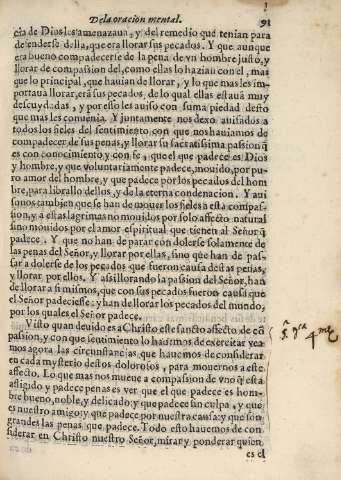 De la oracion mental. 91
cia de Dios les amenazaua, y del remedio que tenian para
defenderse della, que era llorar sus pecados. Y que aunque
era bueno compadecerse de la pena de vn hombre justo, y
llorar de compassion del, como ellas lo hazian con el, mas
que lo principal, que hauian de llorar, y lo que mas les im-
portaua llorar, erã sus pecados, de lo qual ellas estauã muy
descuydadas, y por esso les auiso con suma piedad desto
que mas les conuenia. Y juntamente nos dexo auisados a
todos los fieles del sentimiento, con que nos hauiamos de
compadecer de sus penas, y llorar su sacratissima passion q̃
es con conocimiento, y con fe, que el que padece es Dios
y hombre, y que voluntariamente padece, mouido, por pu-
ro amor del hombre, y que padece por los pecados del hom
bre, para librallo dellos, y de la eterna condenacion. Y aui
sonos tambien que se han de mouer los fieles a esta compas-
sion, y a estas lagrimas no mouidos por solo affecto natural
sino mouidos por el amor espiritual que tienen al Señor q̃
padece. Y que no han de parar con dolerse solamente de
las penas del Señor, y llorar por ellas, sino que han de pas-
sar a dolerse de los pecados que fueron causa destas penas,
y llorar por ellos. Y assi llorando la passion del Señor, han
de llorar a si mismos, que con sus pecados fueron causa que
el Señor padeciesse: y han de llorar los pecados del mundo,
por los quales el Señor padece.
Visto quan deuido es a Christo este sancto affecto de cõ
passion, y con que sentimiento lo hauemos de exercitar vea
mos agora las circunstancias que hauemos de considerar
en cada mysterio destos dolorosos, para mouernos a este
affecto. Lo que mas nos mueue a compassion de vno q̃ està
affligido y padece penas es ver que el que padece es hom-
bre bueno, noble, y delicado: y que padece sin culpa, y que
es nuestro amigo y que padece por nuestra causa: y que son
grandes las penas que padece. Todo esto hauemos de con
siderar en Christo nuestro Señor, mirar y ponderar quien
es el